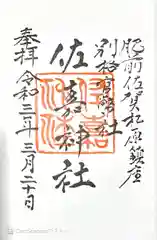 肥前佐賀松原鎮座
別格官幣社
佐嘉神社
奉拝 令和三年三月二十日